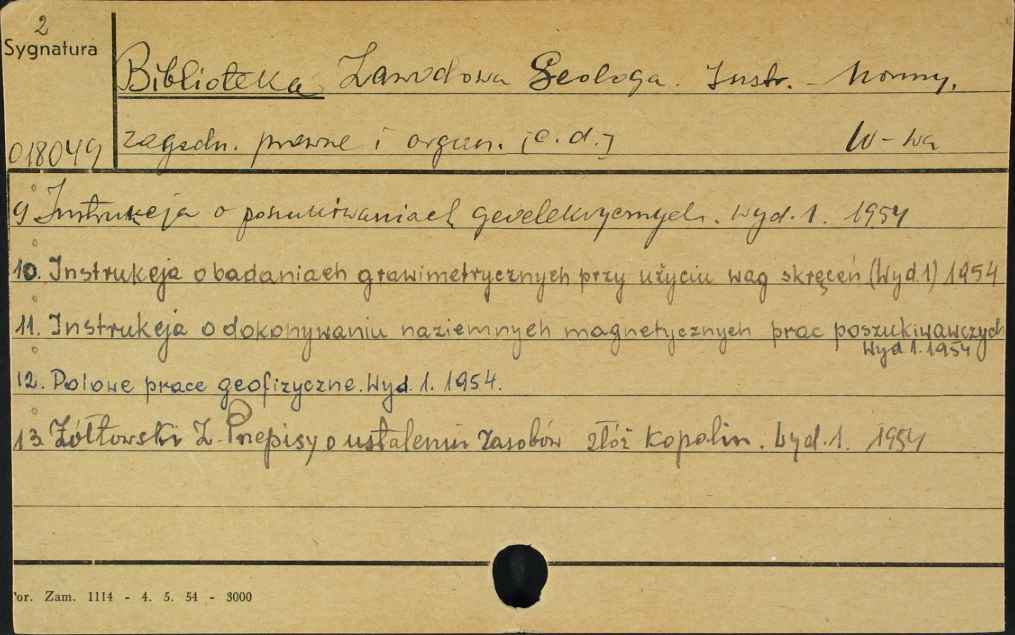 2
Sygnatura
018049
Biblioteka Zawodowa Geologa. Instr. Normy,
zagadn. prawne i organ. [c.d.] W-wa
9 Instrukcja o poszukiwaniach geoelektrycznych. Wyd. 1. 1954
10. Instrukcja o badaniach grawimetrycznych przy użyciu wag skręceń (Wyd.1) 1954
11. Instrukcja o dokonywaniu naziemnych magnetycznych prac poszukiwawczych
Wyd 1. 1954
12. Polowe prace geofizyczne. Wyd. 1. 1954.
13. Żółtowski Z. Przepisy o ustaleniu zasobów złóż kopalin. Wyd. 1. 1954
or. Zam. 1114 - 4. 5. 54 - 3000